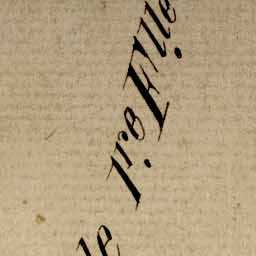 le 1.re F.lle